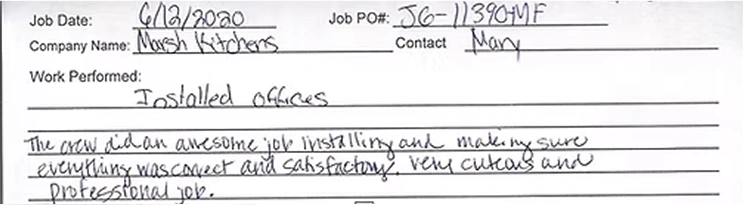 Job Date: 6/12/2020 Job PO#: JG-11390-MF
Company Name: Marsh Kitchens Contact Mary
Work Performed:
Installed offices
The crew did an awesome job installing and making sure
everything was correct and satisfactory. very cuteous and
professional job.